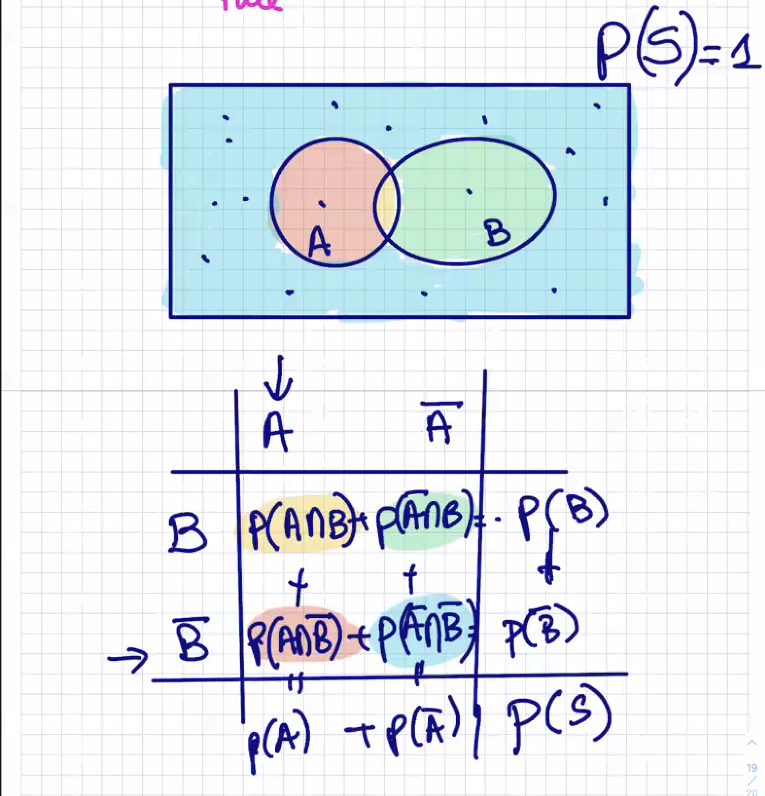 P(S)=1
A B
↓
A A̅
B P(A∩B)+ P(A̅∩B)= P(B)
+ + +
→ B̅ P(A∩B̅)+ P(A̅∩B̅)= P(B̅)
= =
P(A) + P(A̅) P(S)
19
/
20